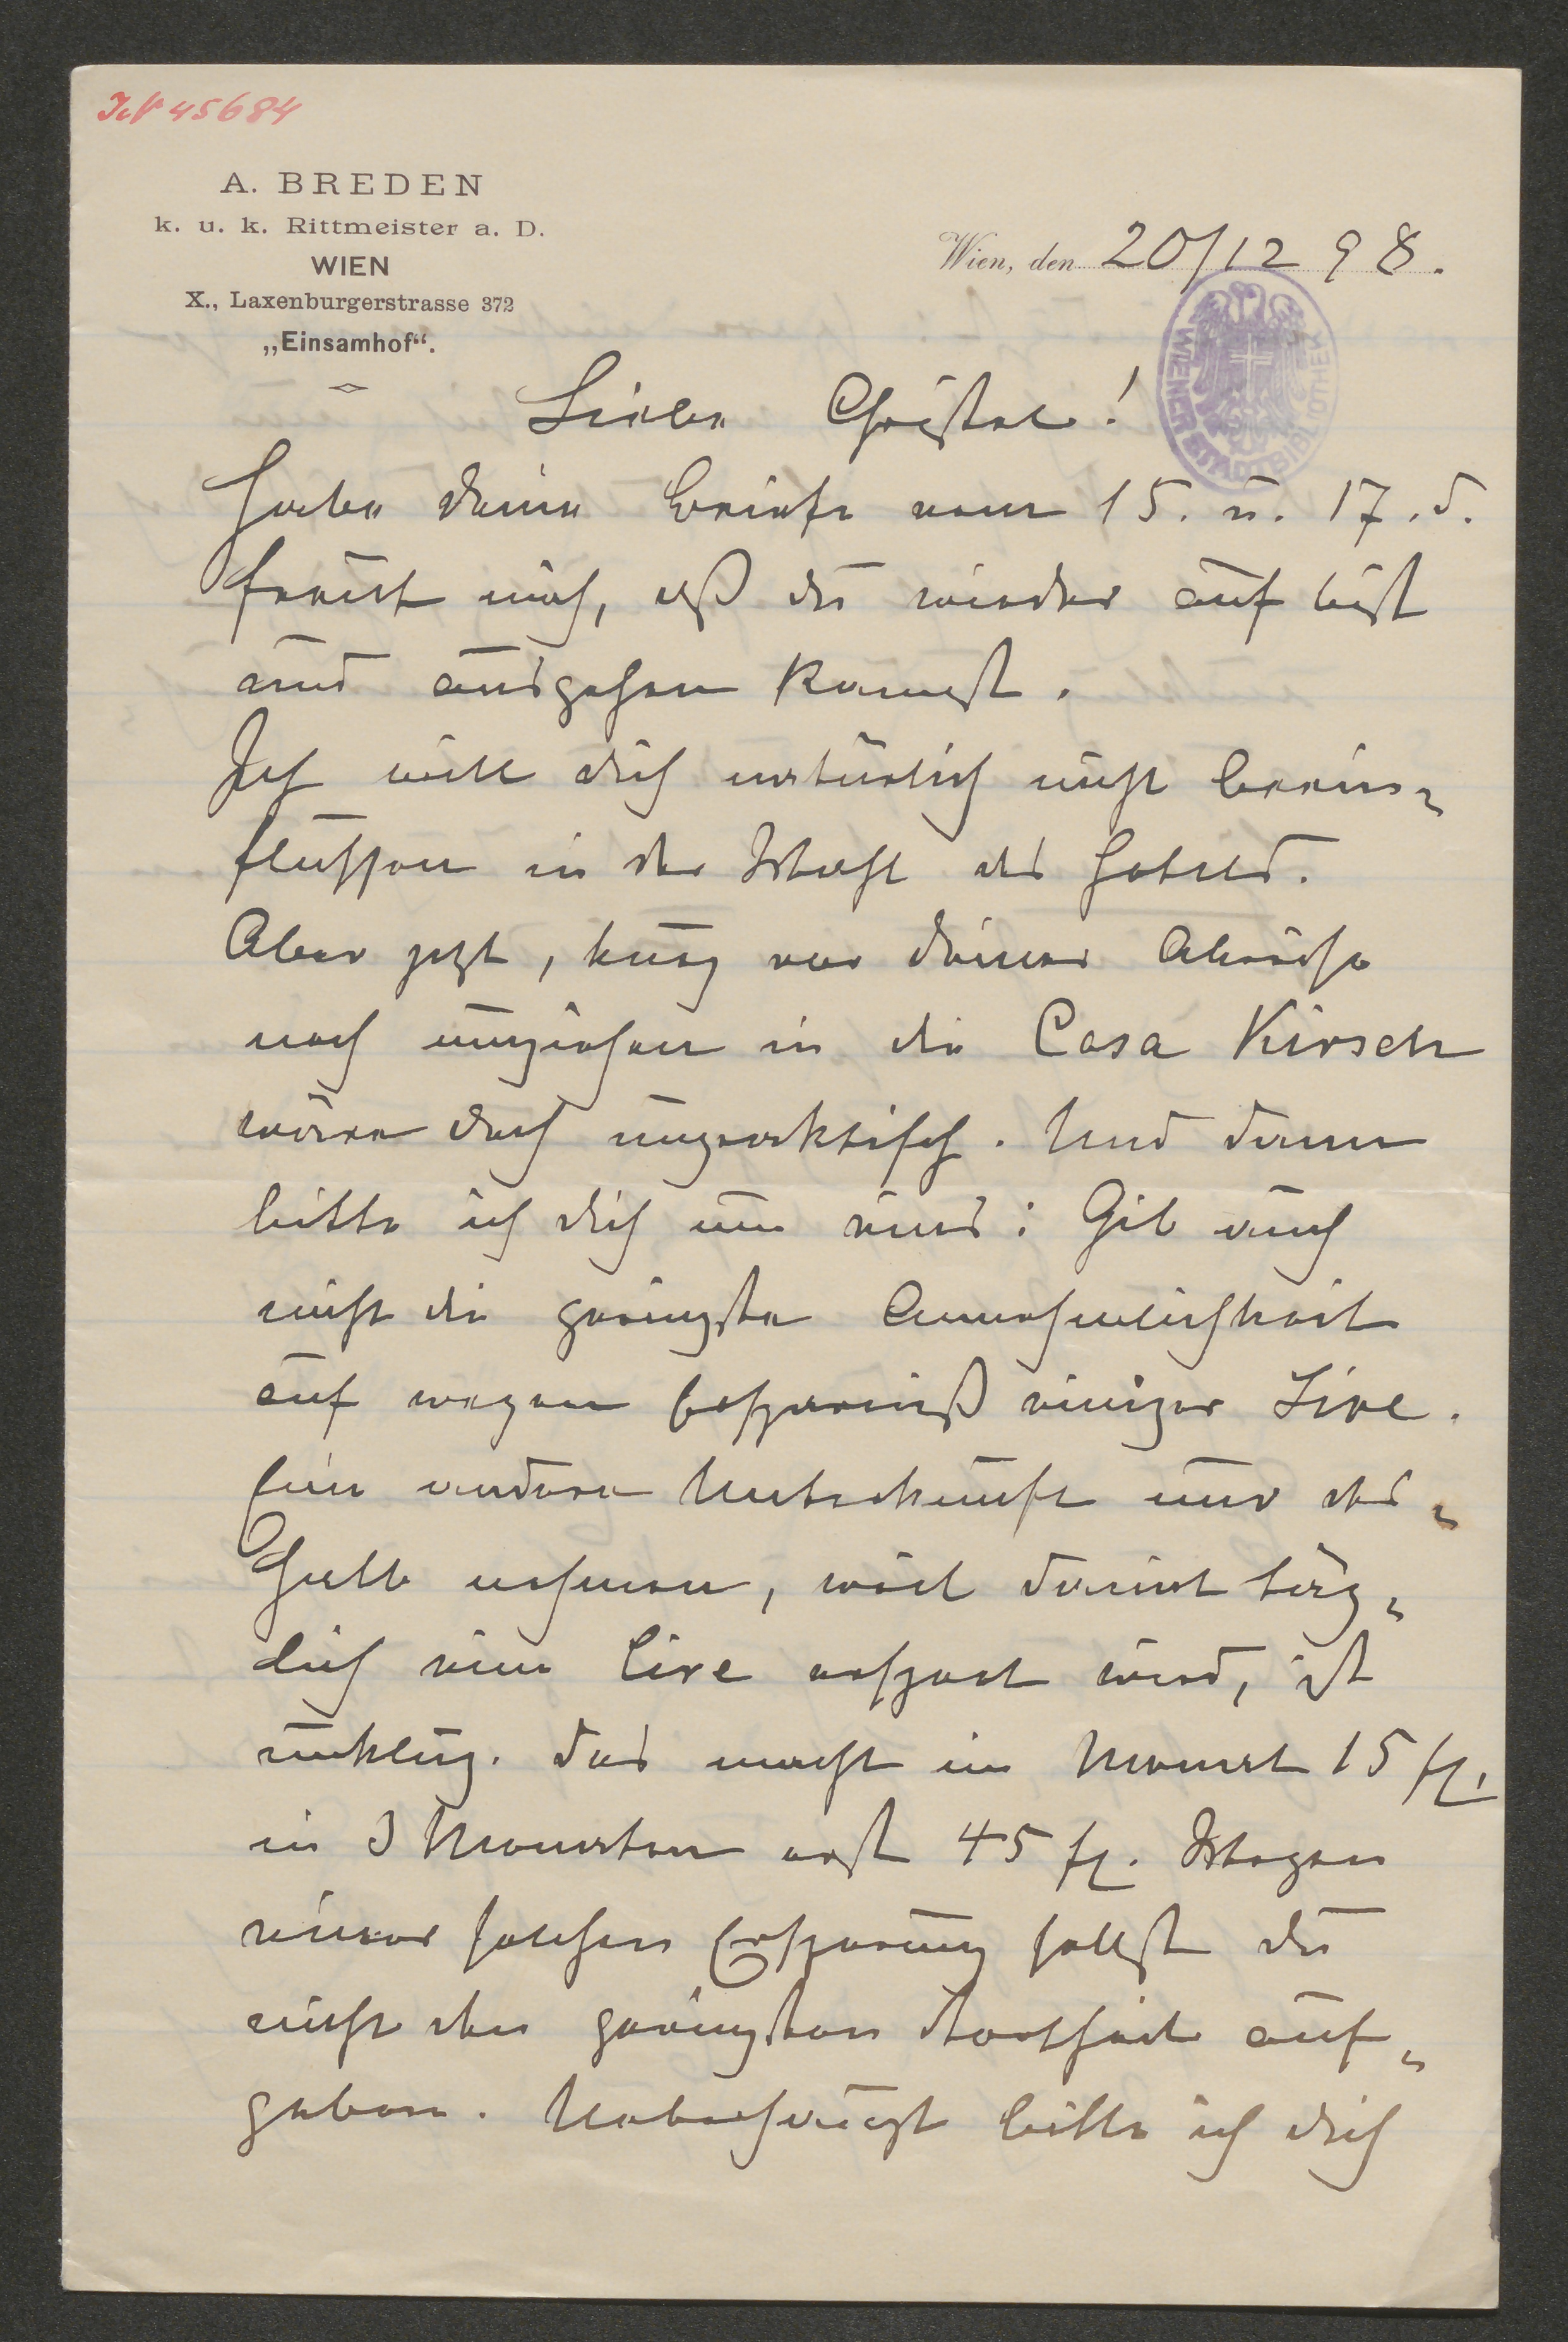 JN 45684
A. BREDEN
k. u. k. Rittmeister a. D.
WIEN
X., Laxenburgerstrasse 372
„Einsamhof“.
Wien, den 20/12 98.
WIENER STADTBIBLIOTHEK
Liebe Christel!
Habe deine Briefe vom 15. u. 17. d.
freut mich, daß du wieder auf bist
und ausgehen kannst.
Ich will dich natürlich nicht beein-
flussen in der Wahl des Hotels.
Aber jetzt, kurz vor deiner Abreise
noch umziehen in die Casa Kirsch
wäre doch unpraktisch. Und dann
bitte ich dich um eins: Gib auch
nicht die geringste Annehmlichkeit
auf wegen Ersparniß einiger Lire.
Eine andere Unterkunft nur des-
halb nehmen, weil damit täg-
lich eine Lire erspart wird, ist
unklug. Das macht im Monat 15 fl.
in 3 Monaten erst 45 fl. Wegen
einer solchen Ersparung sollst du
nicht den geringsten Vortheil auf-
geben. Ueberhaupt bitte ich dich